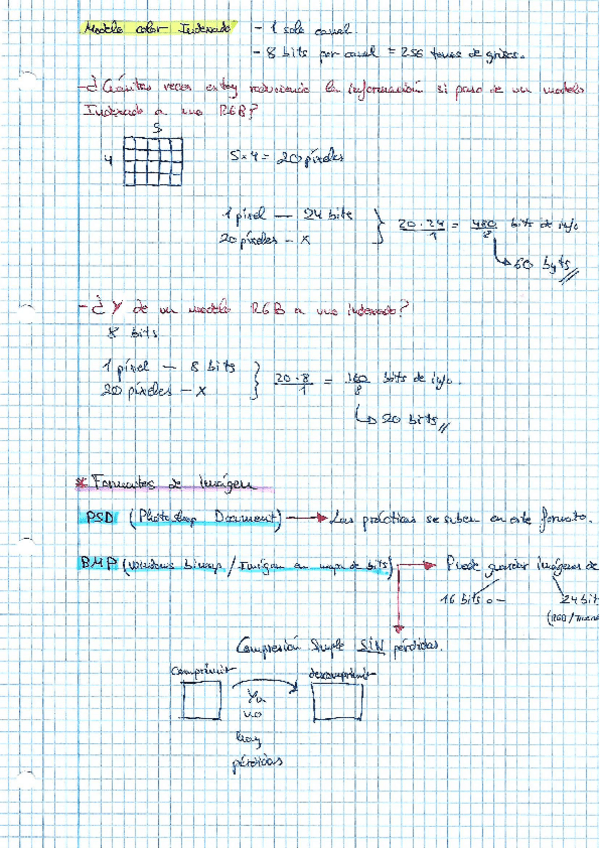 Modelo color Indexado - 1 solo canal.
- 8 bits por canal = 256 tonos de grises.
- ¿Cuántas veces estoy reduciendo la información si paso de un modelo
Indexado a uno RGB?
5
4
5 x 4 = 20 píxeles
1 píxel — 24 bits
20 píxeles - x
20 · 24 / 1 = 480 / 8 bits de info
60 byts
- ¿Y de un modelo RGB a uno indexado?
8 bits
1 píxel — 8 bits
20 píxeles - x
20 · 8 / 1 = 160 / 8 bits de info.
20 bits
* Formatos de imágen
PSD (Photoshop Document) → Las prácticas se suben en este formato.
BMP (Windows bitmap / Imágen en mapa de bits) → Puede guardar imágenes de
16 bits o - 24 bit
(RGB /
Compresión simple SIN pérdidas.
comprimir descomprimir
Ya
no
hay
pérdidas